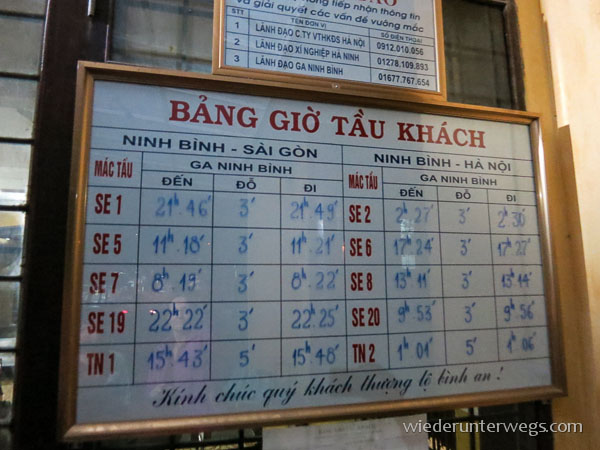 và giải quyết các vấn đề vướng mắc
STT TÊN ĐƠN VỊ SỐ ĐIỆN THOẠI
1 LÃNH ĐẠO C.TY VTHKĐS HÀ NỘI 0912.010.056
2 LÃNH ĐẠO XÍ NGHIỆP HÀ NINH 01278.109.893
3 LÃNH ĐẠO GA NINH BÌNH 01677.767.654
BẢNG GIỜ TẦU KHÁCH
NINH BÌNH - SÀI GÒN NINH BÌNH - HÀ NỘI
MÁC TẦU GA NINH BÌNH MÁC TẦU GA NINH BÌNH
ĐẾN ĐỖ ĐI ĐẾN ĐỖ ĐI
SE 1 21h.46' 3' 21h.49' SE 2 2h 27' 3' 2h 30'
SE 5 11h.18' 3' 11h.21' SE 6 17h 24' 3' 17h 27'
SE 7 8h 19' 3' 8h 22' SE 8 13h 11' 3' 13h 14'
SE 19 22h 22' 3' 22h 25' SE 20 9h 53' 3' 9h 56'
TN 1 15h 43' 5' 15h 48' TN 2 1h 01' 5' 1h 06'
Kính chúc quý khách thượng lộ bình an !
wiederunterwegs.com